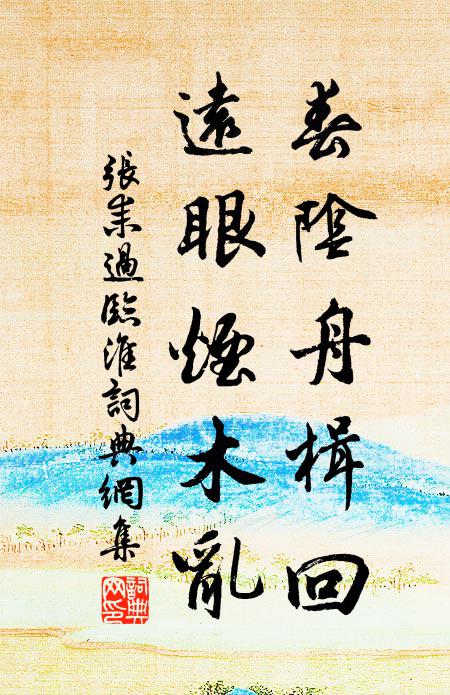 春陰舟楫回
遠眼煙木亂
張耒過臨淮詞典網集
詞典網印